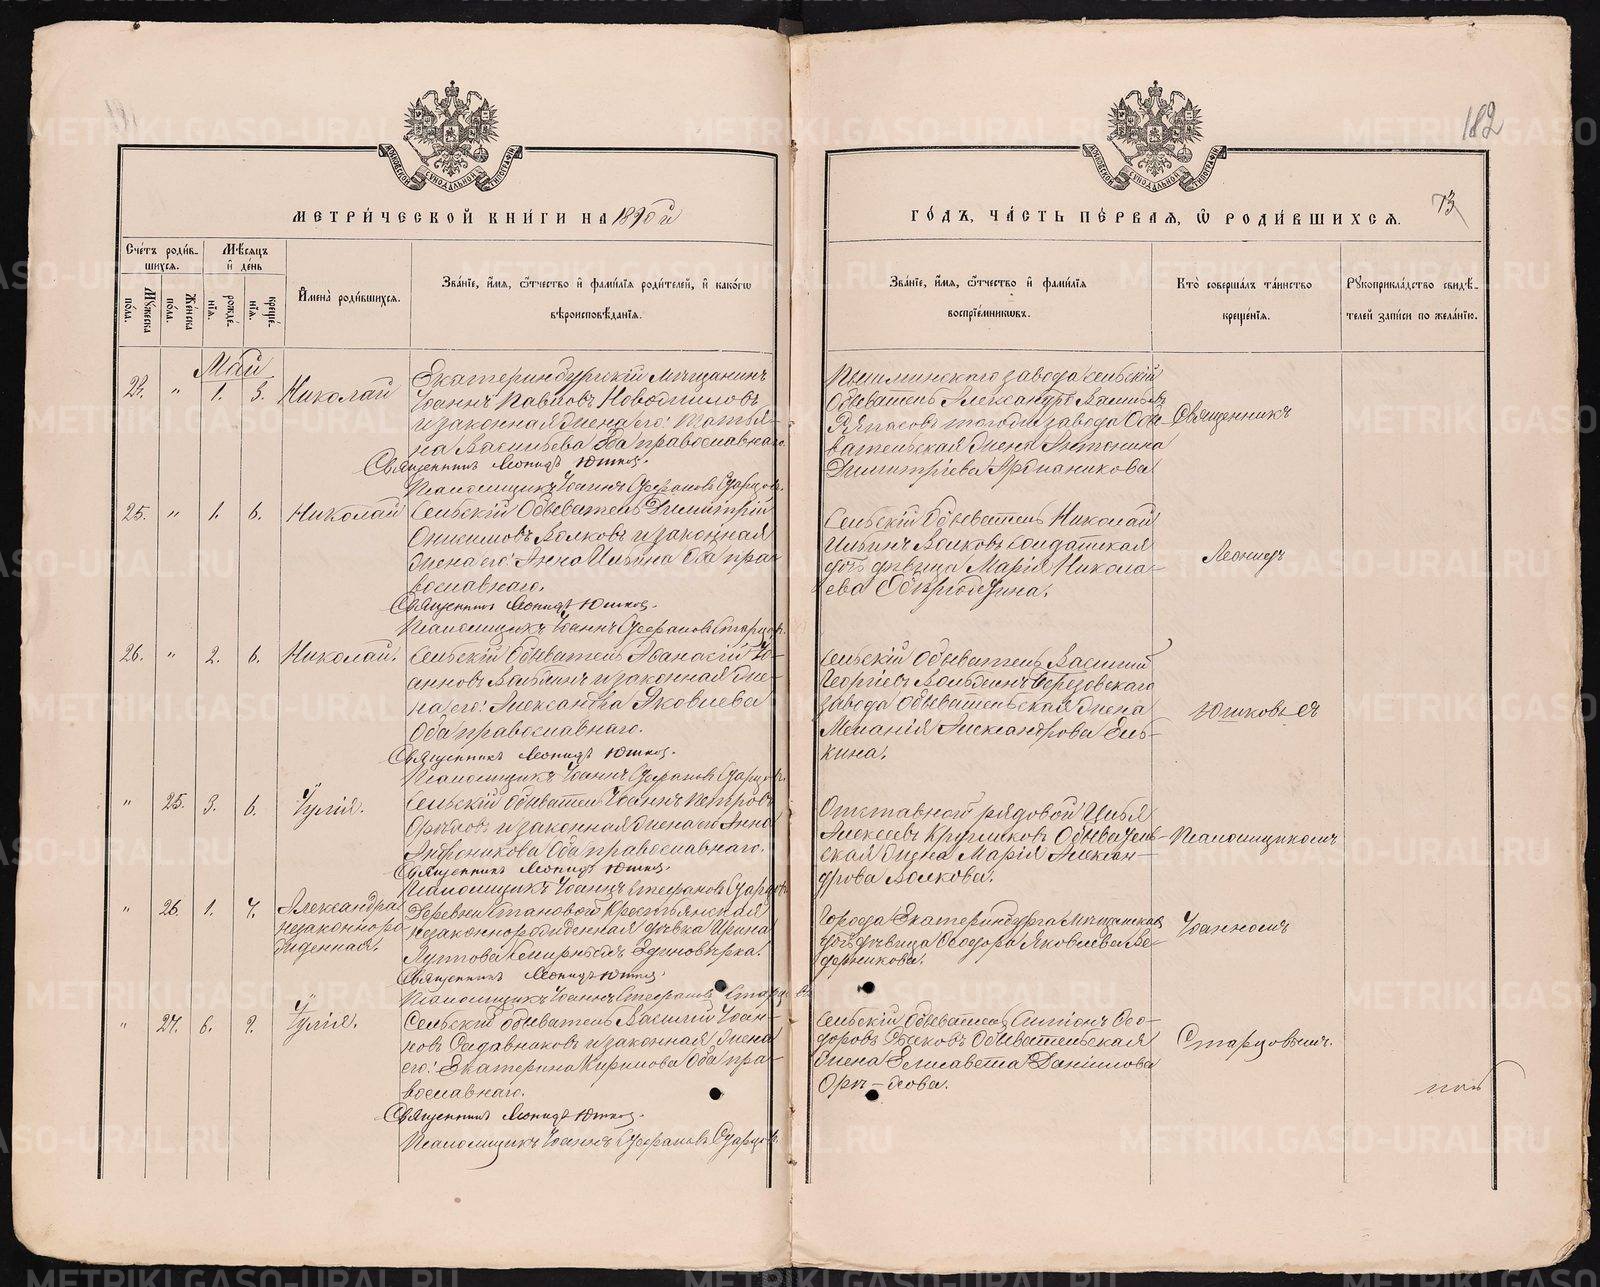 182
73
МЕТРИ́ЧЕСКОЙ КНИ́ГИ НА 1890й
ГО́ДЪ, ЧА́СТЬ ПЕ́РВАЯ, Ѿ РОДИ́ВШИХСЯ.
Сче́тъ роди́в-
шихся.
Му́жеска
по́ла.
Же́нска
по́ла.
Мѣ́сяцъ
и де́нь
рожде́-
нїя.
креще́-
нїя.
И҆мена̀ роди́вшихся.
Зва́нїе, и҆́мя, ѻ҆́тчество и҆ фами́лїя роди́телей, и҆ како́гѡ
вѣроисповѣ́данїя.
Зва́нїе, и҆́мя, ѻ҆́тчество и҆ фами́лїя
воспрїе́мникѡвъ.
Кто̀ соверша́лъ та́инство
креще́нїя.
Рукоприкла́дство свидѣ́-
телей за́писи по жела́нїю.
Май
" 1. 3. Николай
Екатеринбургскій мѣщанинъ
Іоаннъ Павловъ Новожиловъ
и законная жена его: Татья-
на Васильева Оба православнаго
Священникъ Леонидъ Юшков.
Псаломщикъ Іоаннъ Стефановъ Старцовъ.
Пышминскаго завода сельскій
Обыватель Александръ Васильевъ
тогоже завода Обы-
вательская жена Антонина
Димитріева
Священникъ
25. " 1. 6. Николай
Сельскій Обыватель Димитрій
Онисимовъ Волковъ и законная
жена его: Анна Ильина Оба пра-
вославнаго.
Священникъ Леонидъ Юшков.
Псаломщикъ Іоаннъ Стефановъ Старцов.
Сельскій Обыватель Николай
Ильинъ Волковъ Солдатская
дочь дѣвица Марія Никола-
ева
Леонидъ
26. " 2. 6. Николай.
Сельскій Обыватель Аѳанасій Іо-
анновъ и законная же-
на его: Александра Яковлева
Оба православнаго.
Священникъ Леонидъ Юшков.
Псаломщикъ Іоаннъ Стефановъ Старцов.
Сельскій Обыватель Василий
Георгіевъ Березовскаго
завода Обывательская жена
Меланія Александрова Ель-
кина.
Юшковъ съ
" 25. 3. 6. Іулія.
Сельскій Обыватель Іоаннъ Петровъ
и законная жена его Анна
Андроникова Оба православнаго.
Священникъ Леонидъ Юшков.
Псаломщикъ Іоаннъ Стефановъ Старцовъ
Отставной рядовой Илья
Алексеевъ Кругликовъ Обыватель-
ская жена Марія Алексан-
дрова Волкова.
Псаломщикомъ
" 26. 1. 7. Александра
незаконноро-
жденная.
Деревни Становой Крестьянская
незаконнорожденная дѣвка Ирина
Единовѣрка.
Священникъ Леонидъ Юшков.
Псаломщикъ Іоаннъ Стефановъ Старцовъ
Города Екатеринбурга Мѣщанская
дочь дѣвица Ѳеодора Яковлева Ве-
дерникова.
Іоанномъ
" 27. 6. 9. Іулія.
Сельскій обыватель Василій Іоан-
новъ и законная жена
его: Екатерина Кирилова Оба пра-
вославнаго.
Священникъ Леонидъ Юшков.
Псаломщикъ Іоаннъ Стефановъ Старцов.
Сельскій Обыватель Ѳео-
доровъ Обывательская
жена Елисавета Даниілова
Старцовымъ.